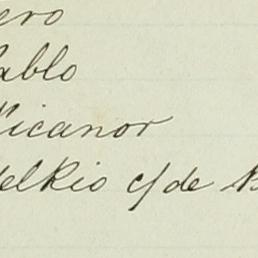 ero
ablo
Nicanor
delRio c/de B